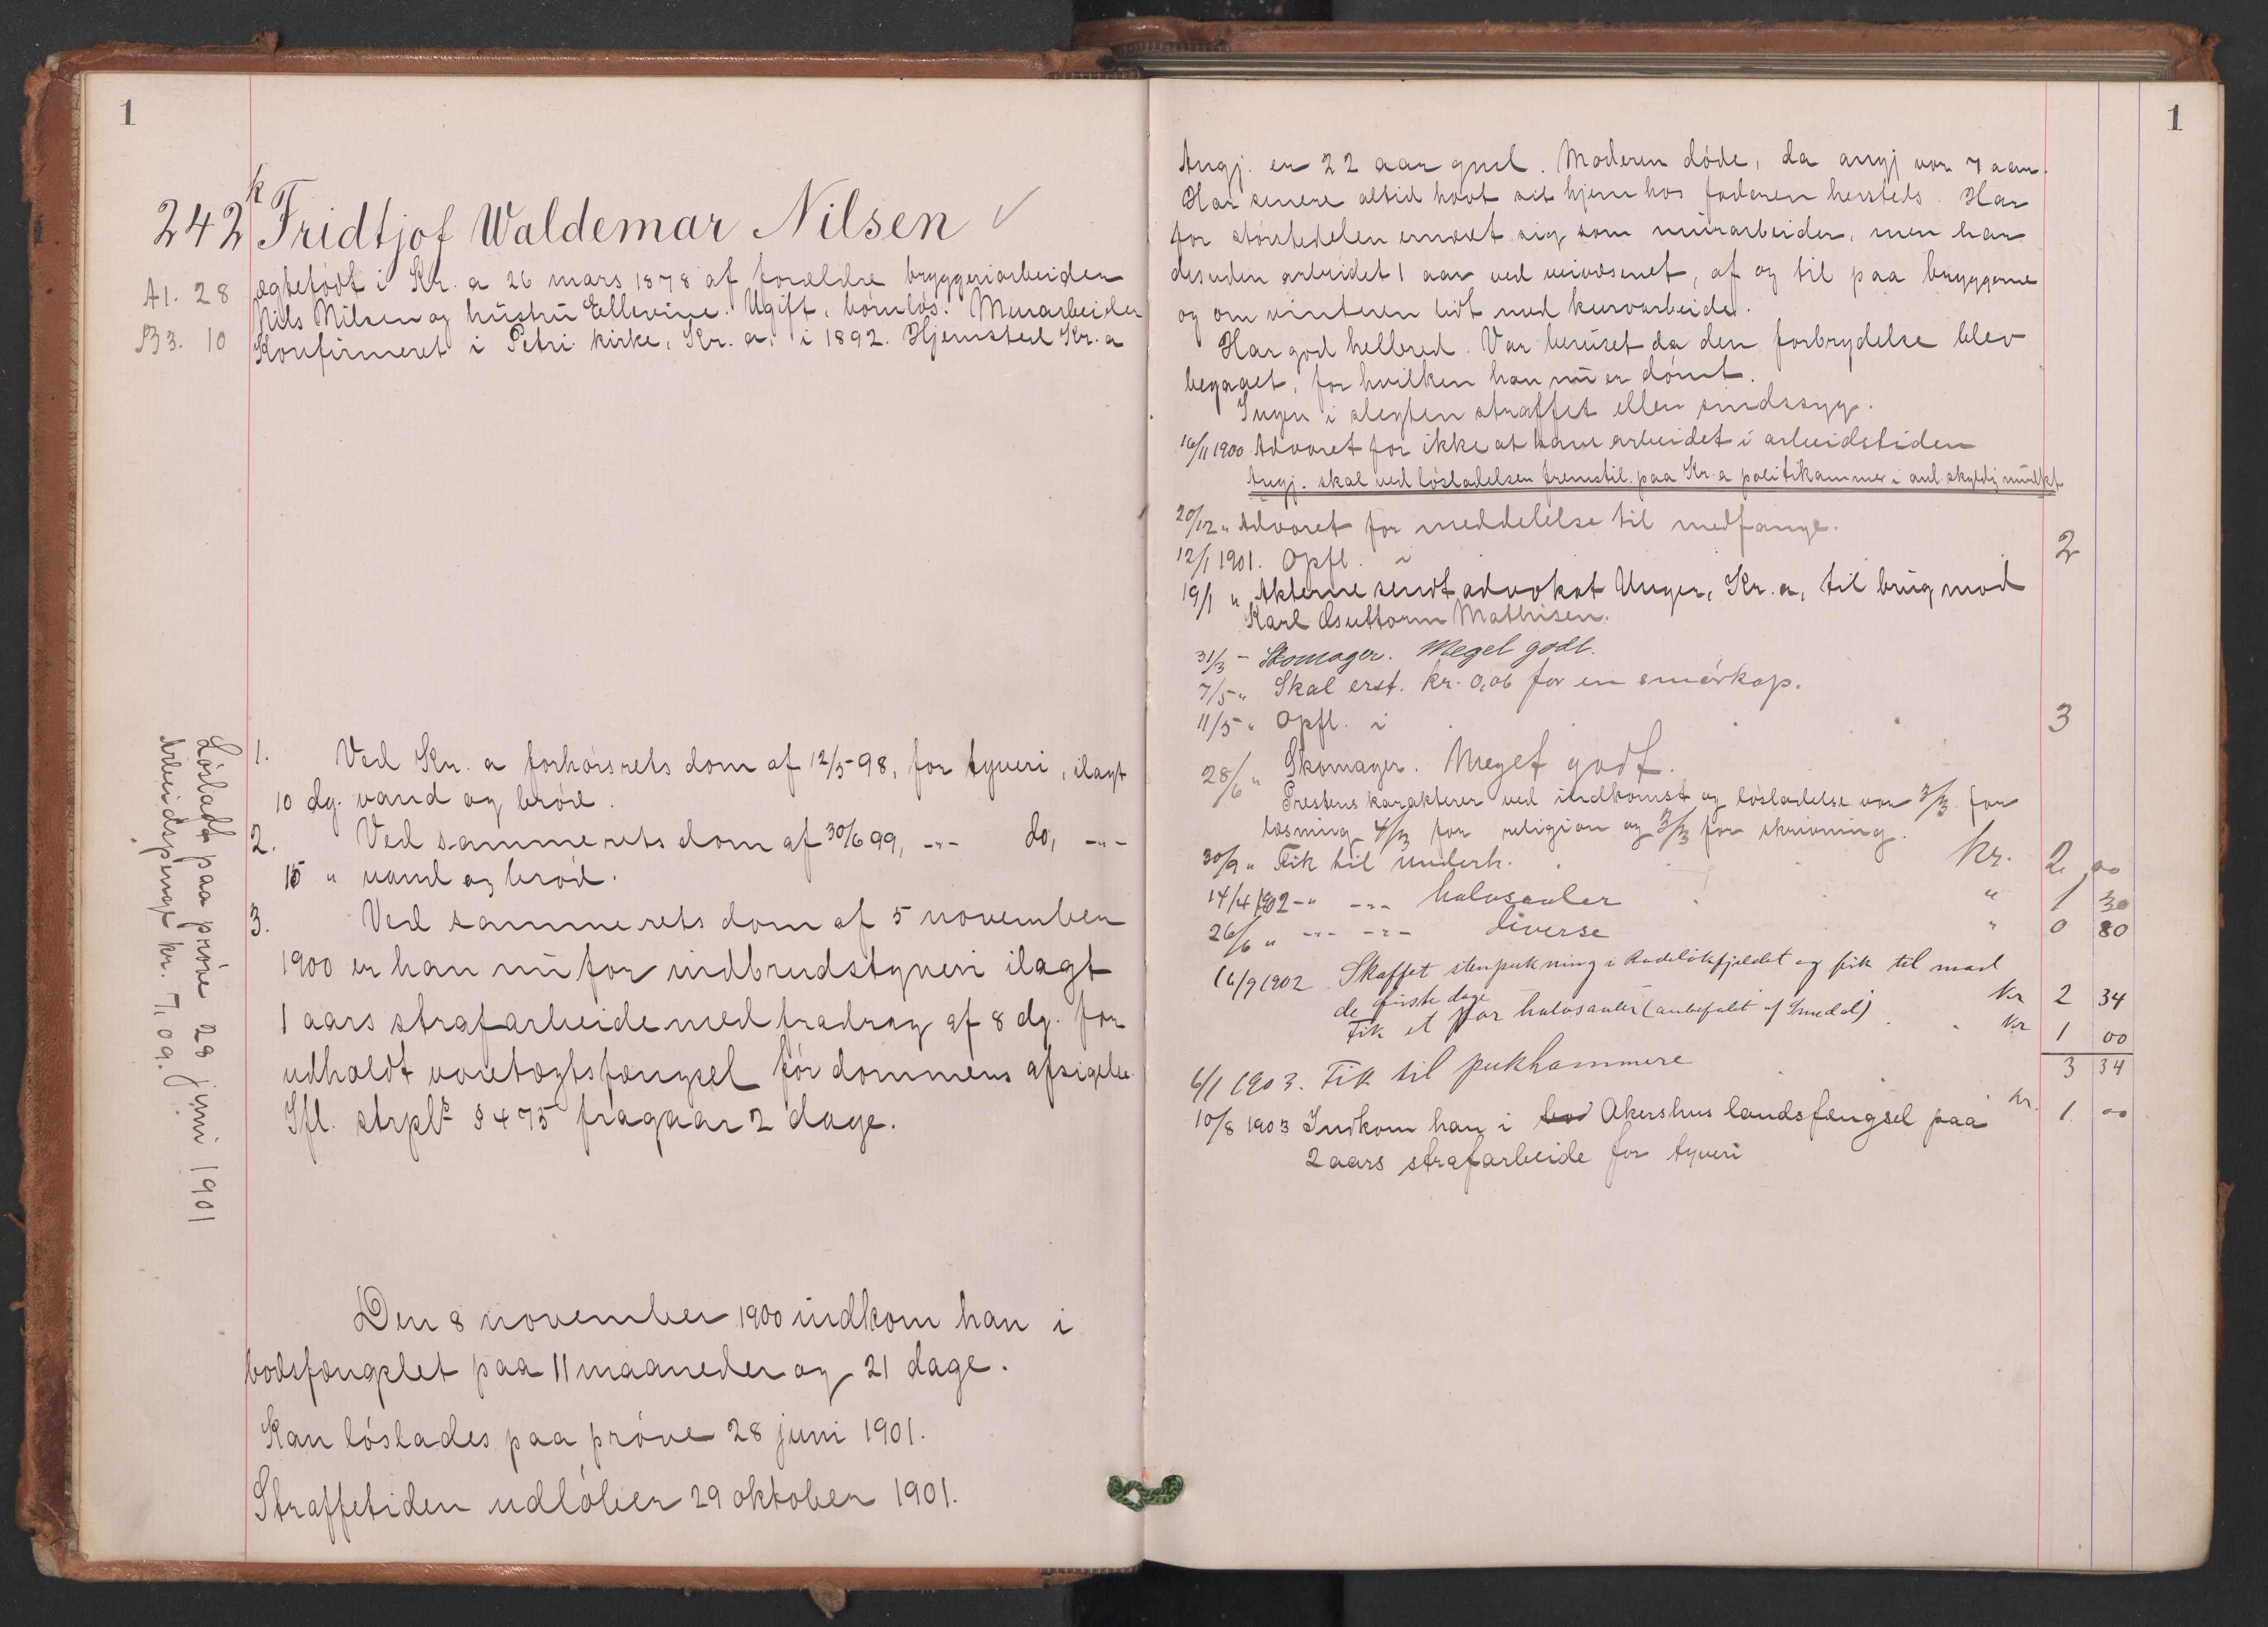 1
242
k
Fridtjof Waldemar Nilsen ✓
A1. 28
B3. 10
ægtefødt i Kr.a 26 mars 1878 af forældre bryggeriarbeider
Nils Nilsen og hustru Ellevine. Ugift, børnløs. Murarbeider
Konfirmeret i Petri kirke, Kr.a. i 1892. Hjemsted Kr.a
1. Ved Kr.a forhørsrets dom af 12/5-98, for tyveri, ilagt
10 dg. vand og brød.
2. Ved sammerets dom af 30/6 99, -"- do, -"-
15 " vand og brød.
3. Ved sammerets dom af 5 november
1900 er han nu for indbrudstyveri ilagt
1 aars strafarbeide med fradrag af 8 dg. for
udholdt varetægtsfængsel før dommens afsigelse.
Ifl. strpls § 475 fragaar 2 dage.
Løsladt paa prøve 28 juni 1901
Arbeidspenge kr. 7,09.
Den 8 november 1900 indkom han i
bodsfængslet paa 11 maaneder og 21 dage.
Kan løslades paa prøve 28 juni 1901.
Straffetiden udløber 29 oktober 1901.
1
Angj. er 22 aar gml. Moderen døde, da angj var 7 aar.
Har senere altid havt sit hjem hos faderen hersteds. Har
for størstedelen ernæret sig som murarbeider, men har
desuden arbeidet 1 aar ved veivæsenet, af og til paa bryggerne
og om vinteren lidt med kurvarbeide.
Har god helbred. Var beruset da den forbrydelse blev
begaaet, for hvilken han nu er dømt.
Ingen i slegten straffet eller sindssyg.
16/11 1900 Advaret for ikke at have arbeidet i arbeidstiden
Angj. skal ved løsladelsen fremstil. paa Kr.a politikammer i anl. skyldig mulkt
20/12 " Advaret for meddelelse til medfange.
12/1 1901. Opfl. i 2
19/1 " Akterne sendt advokat Unger, Kr.a, til brug mod
Karl Guttorm Mathisen.
31/3 - Skomager. Meget godt.
7/5 " Skal erst. kr. 0,06 for en smørkop.
11/5 " Opfl. i 3
28/6 " Skomager. Meget godt.
Prestens karakterer ved indkomst og løsladelse var 3/3 for
læsning, 4/3 for religion og 3/3 for skrivning.
30/9 " Fik til underh. kr. 2,00
14/4 1902 -" -"- halvsaaler " 1 30
26/6 " -"- -"- diverse " 0 80
16/9 1902. Skaffet stenpukning i og fik til mad
de første dage Kr 2 34
Fik et par halvsaaler (anbefalt af Smedal) Kr 1 00
3 34
6/1 1903. Fik til pukhammere Kr. 1. 00
10/8 1903 Indkom han i Akershus landsfængsel paa
2 aars strafarbeide for tyveri